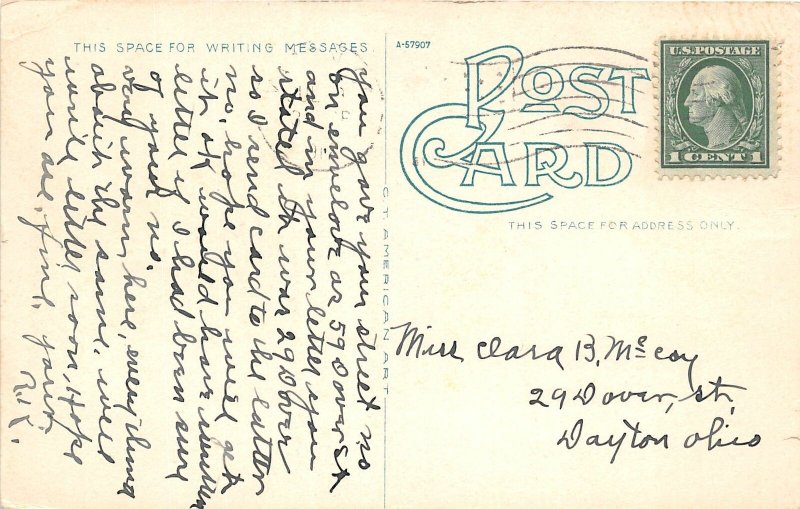 THIS SPACE FOR WRITING MESSAGES
A-57907
POST CARD
U.S. POSTAGE
1 CENT 1
THIS SPACE FOR ADDRESS ONLY.
C T AMERICAN ART
you gave your street no
on envelope as 59 Dover St
and in your letter you
stated it was 29 Dover
so I send card to the latter
no, hope you will get
it, ok would have written
letter if I had been sure
of your no.
very warm here, everything
about the same, will
write letter soon, Hope
you are, fine, yours,
R.K.
Miss Clara B. McCoy
29 Dover, st,
Dayton Ohio